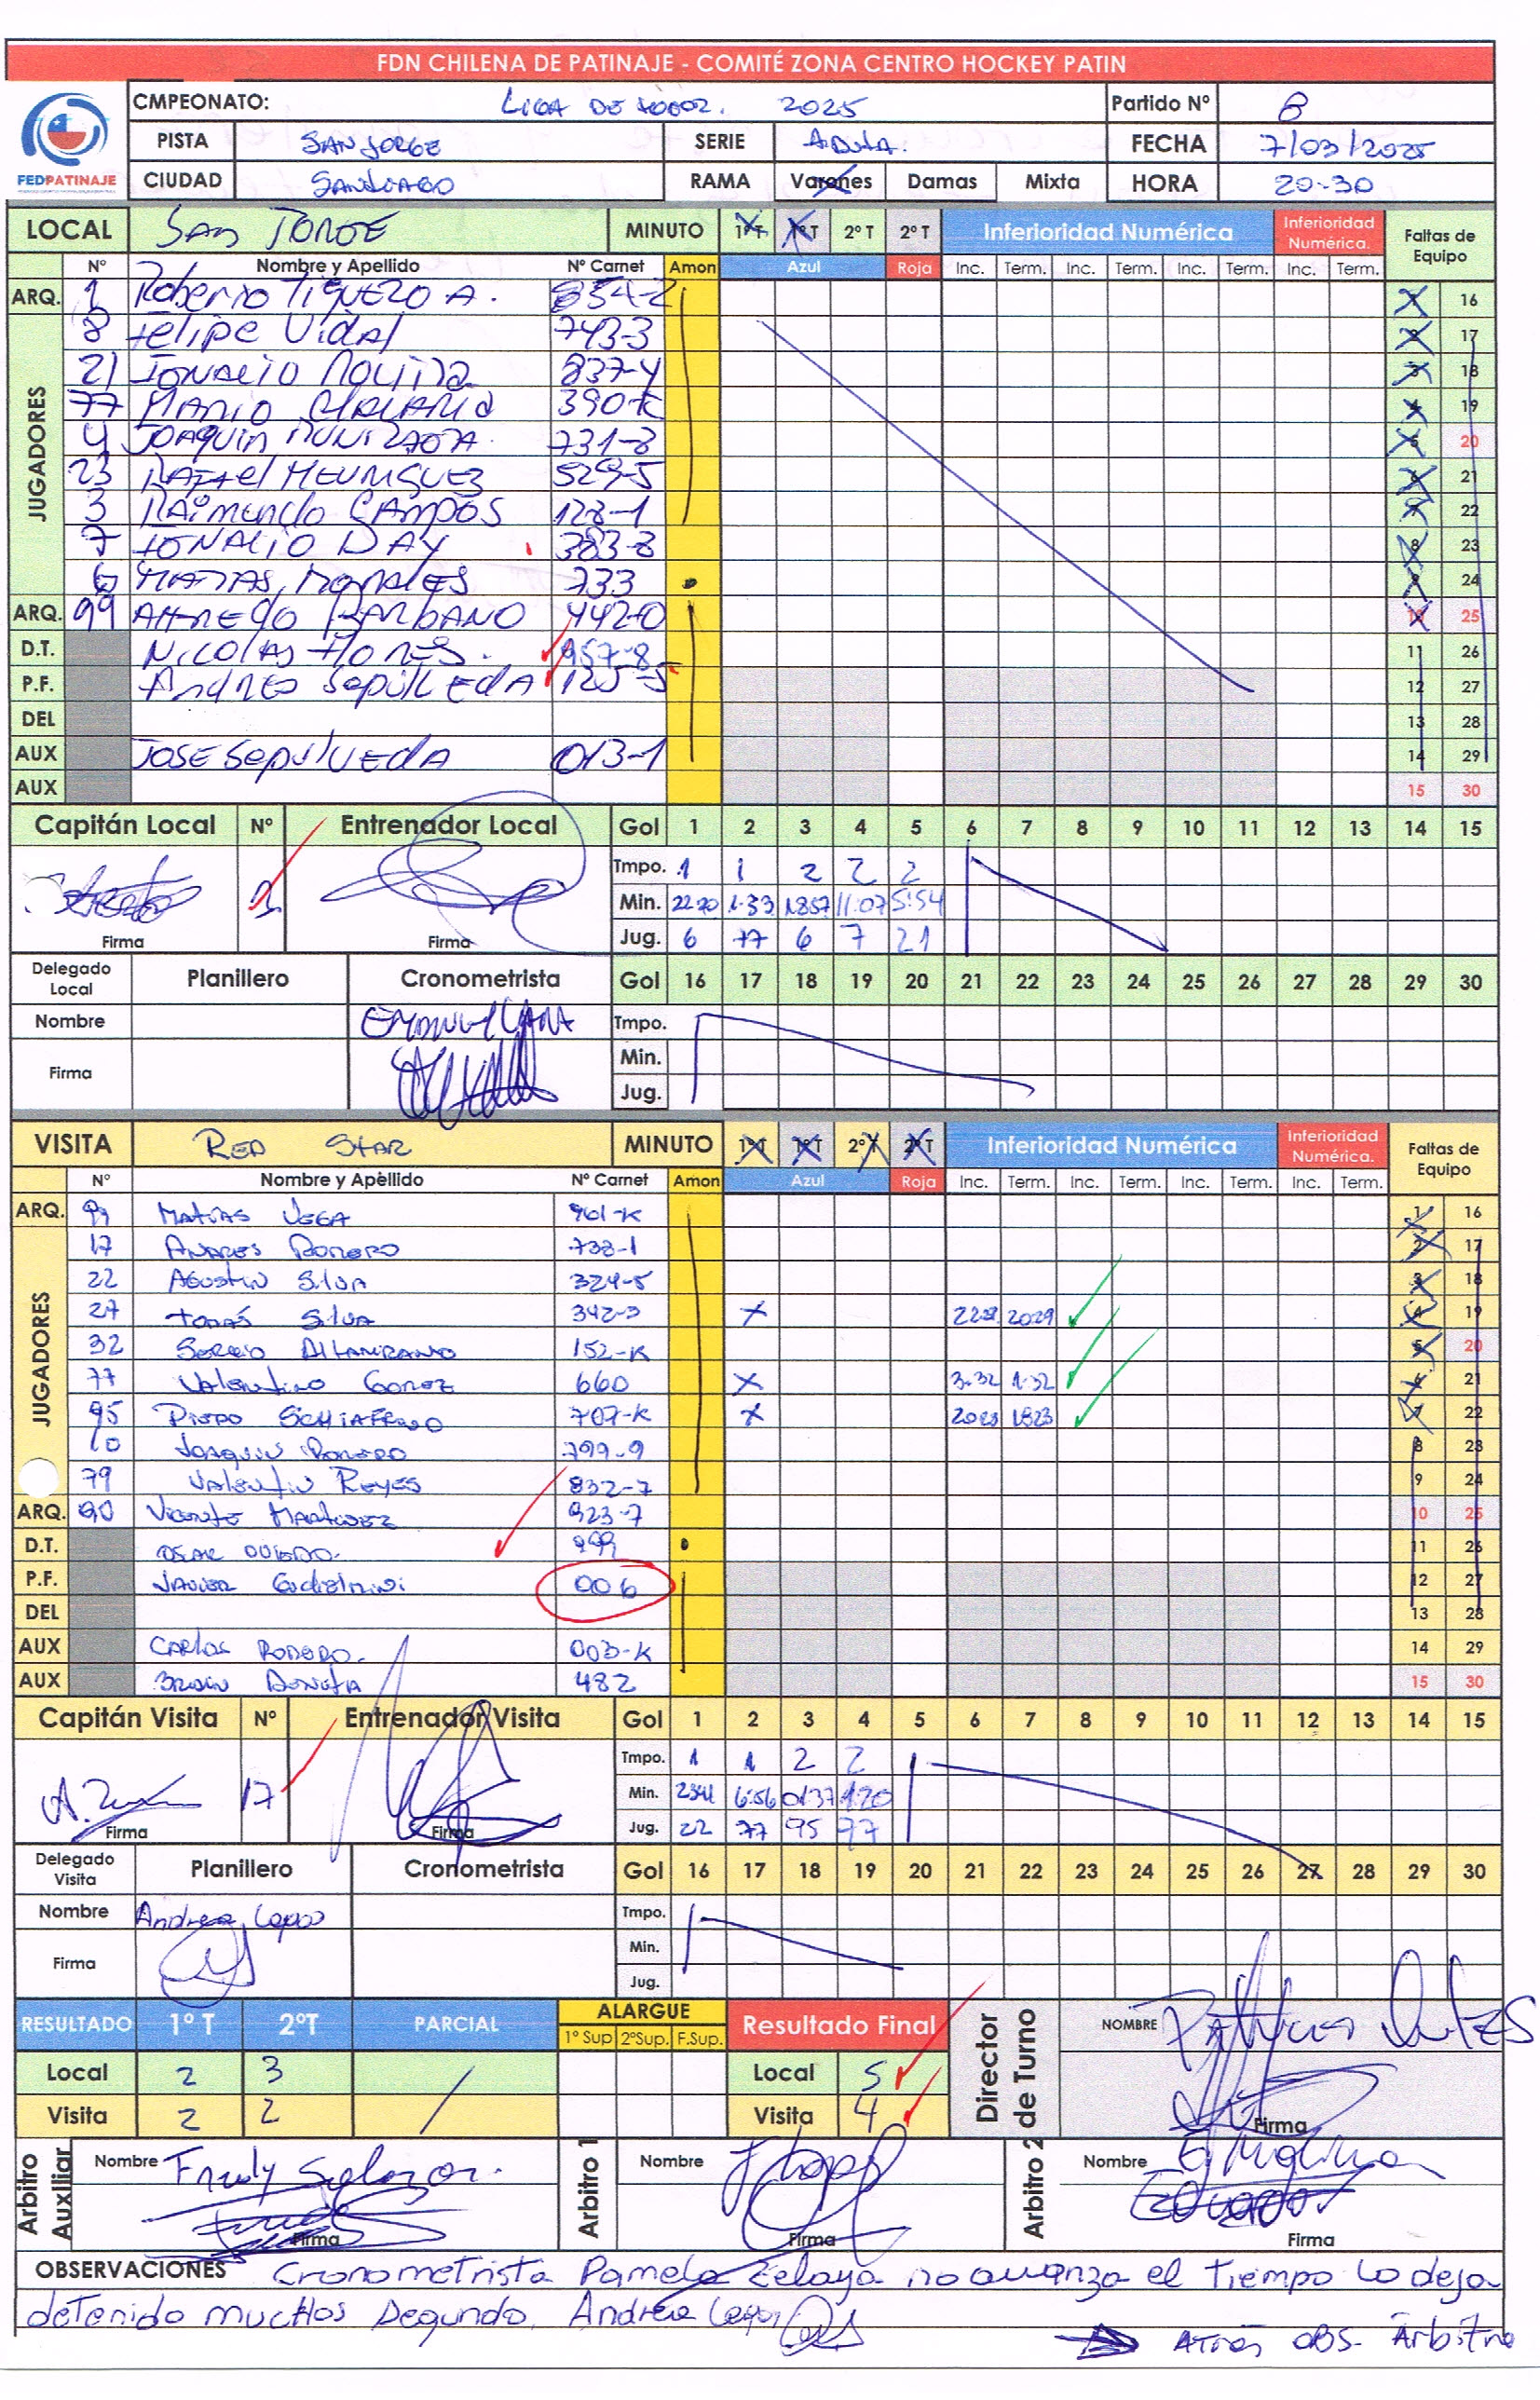 FDN CHILENA DE PATINAJE - COMITÉ ZONA CENTRO HOCKEY PATIN
FEDPATINAJE
CMPEONATO: LIGA DE 2025 Partido Nº 8
PISTA SAN JORGE SERIE Adulta. FECHA 7/03/2025
CIUDAD SANTIAGO RAMA Varones Damas Mixta HORA 20-30
LOCAL SAN JORGE MINUTO 1º T 1º T 2º T 2º T Inferioridad Numérica Inferioridad Numérica. Faltas de Equipo
Nº Nombre y Apellido Nº Carnet Amon Azul Roja Inc. Term. Inc. Term. Inc. Term. Inc. Term.
ARQ. 1 Roberto A. 854-2 1 16
JUGADORES
8 Felipe Vidal 743-3 2 17
21 IGNACIO 837-4 3 18
77 MARIO 390-K 4 19
4 JOAQUIN 731-8 5 20
23 RAFAEL 529-5 6 21
3 RAIMUNDO CAMPOS 128-1 7 22
7 IGNACIO DAY 383-8 8 23
6 MATIAS MORALES 733 9 24
ARQ. 99 ALFREDO 442-0 10 25
D.T. NICOLAS FLORES. 957-8 11 26
P.F. Andres Sepulveda 125-5 12 27
DEL 13 28
AUX JOSE Sepulveda 013-1 14 29
AUX 15 30
Capitán Local Nº Entrenador Local Gol 1 2 3 4 5 6 7 8 9 10 11 12 13 14 15
Tmpo. 1 1 2 2 2
1 Min. 22:20 1:33 18:57 11:07 5:54
Firma Firma Jug. 6 77 6 7 21
Delegado Local Planillero Cronometrista Gol 16 17 18 19 20 21 22 23 24 25 26 27 28 29 30
Nombre Tmpo.
Firma Min.
Jug.
VISITA RED STAR MINUTO 1º T 1º T 2º T 2º T Inferioridad Numérica Inferioridad Numérica. Faltas de Equipo
Nº Nombre y Apellido Nº Carnet Amon Azul Roja Inc. Term. Inc. Term. Inc. Term. Inc. Term.
ARQ. 99 MATIAS VEGA 961-K 1 16
JUGADORES
17 ANDRES ROMERO 738-1 2 17
22 AGUSTIN SILVA 324-5 3 18
27 TOMÁS SILVA 342-3 X 20:29 4 19
32 SERGIO ALTAMIRANO 152-K 5 20
77 VALENTINO GOMEZ 660 X 3:32 1:32 6 21
95 707-K X 2023 1823 7 22
10 JOAQUIN ROMERO 799-9 8 23
79 VALENTIN REYES 832-7 9 24
ARQ. 90 VICENTE MARTINEZ 923-7 10 25
D.T. OSCAR OVIEDO. 999 11 26
P.F. JAVIER 006 12 27
DEL 13 28
AUX CARLOS ROMERO. 003-K 14 29
AUX 482 15 30
Capitán Visita Nº Entrenador Visita Gol 1 2 3 4 5 6 7 8 9 10 11 12 13 14 15
Tmpo. 1 1 2 2
17 Min. 2341 6:56 0:37 1:20
Firma Firma Jug. 22 77 95 77
Delegado Visita Planillero Cronometrista Gol 16 17 18 19 20 21 22 23 24 25 26 27 28 29 30
Nombre Andrea Lopez Tmpo.
Firma Min.
Jug.
RESULTADO 1º T 2ºT PARCIAL ALARGUE 1º Sup 2ºSup. F.Sup. Resultado Final Director de Turno NOMBRE
Local 2 3 Local 5
Visita 2 2 Visita 4 Firma
Arbitro Auxiliar Nombre Fredy Salazar. Arbitro 1 Nombre Arbitro 2 Nombre E. Molina
Firma Firma Firma
OBSERVACIONES Cronometrista Pamela Zelaya no avanza el tiempo lo deja
detenido muchos segundo. Andrea Lopez
Atrás OBS. Arbitro